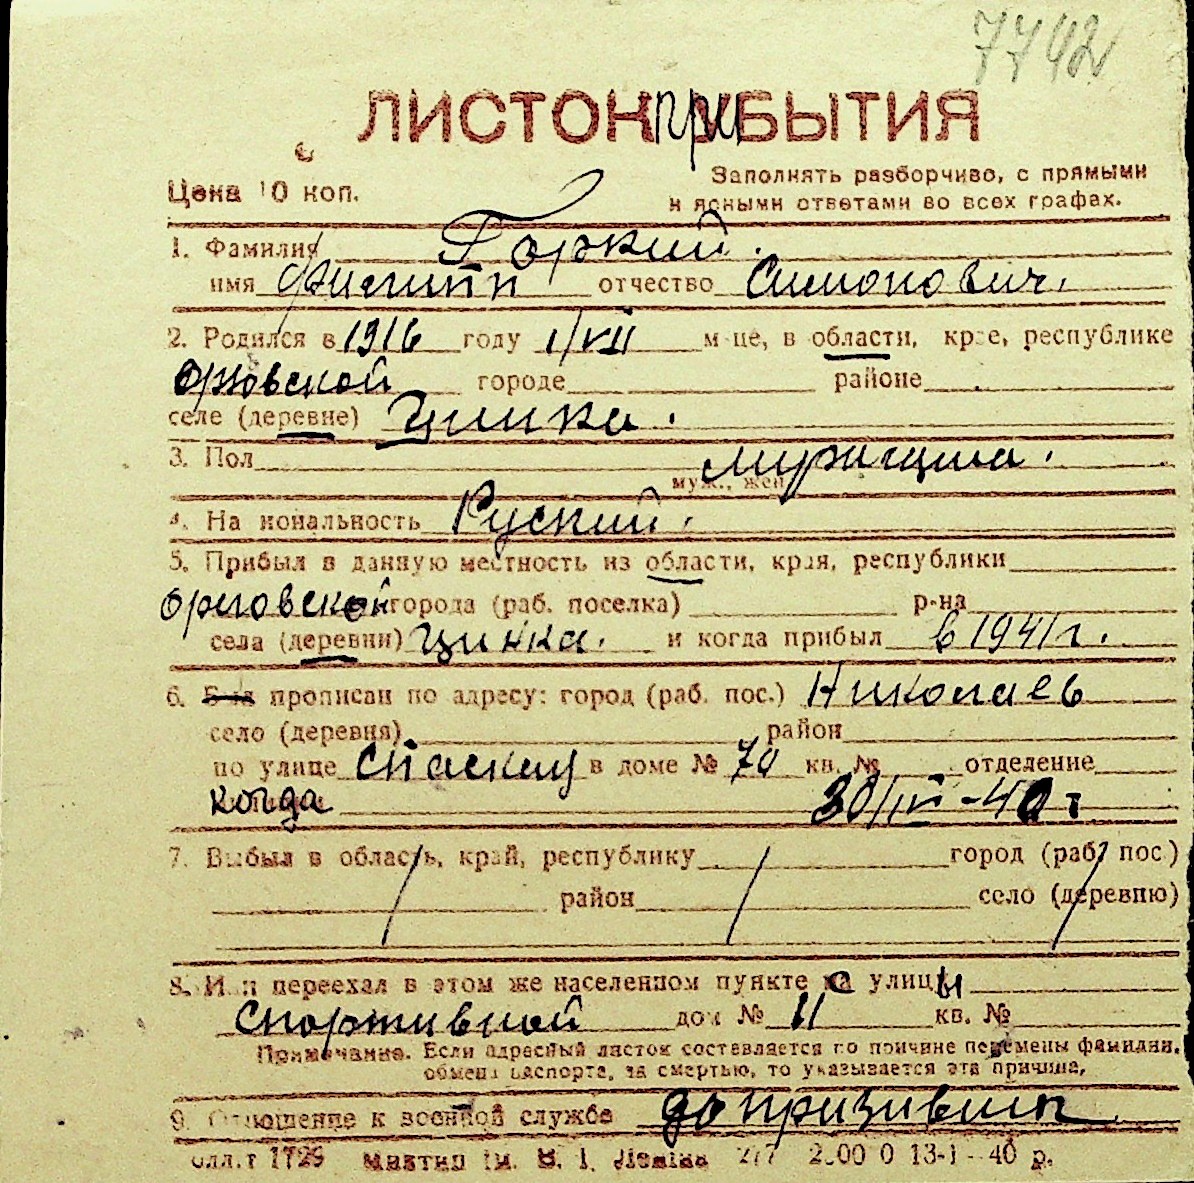 7742
ЛИСТОК ПРИБЫТИЯ
Цена 10 коп.
Заполнять разборчиво, с прямыми
и ясными ответами во всех графах.
1. Фамилия Горкий.
имя Филипп отчество Симонович.
2. Родился в 1916 году 1/VII м-це, в области, крае, республике
Орловской городе районе
селе (деревне) Цинка.
3. Пол мущина.
муж., жен.
4. Национальность Руский.
5. Прибыл в данную местность из области, края, республики
Орловской города (раб. поселка) р-на
села (деревни) Цинка. и когда прибыл в 1941 г.
6. прописан по адресу: город (раб. пос.) Николаев
село (деревня) район
по улице Спаскому в доме № 70 кв. № отделение
когда 30/IV-40 г
7. Выбыл в область, край, республику город (раб. пос)
район село (деревню)
8. Или переехал в этом же населенном пункте с улицы
Спортивной дом № 11 кв. №
Примечание. Если адресный листок составляется по причине перемены фамилии,
обмена паспорта, за смертью, то указывается эта причина,
9. Отношение к военной службе допризивник
1729 ім. В. І. Леніна 13-I-40 р.